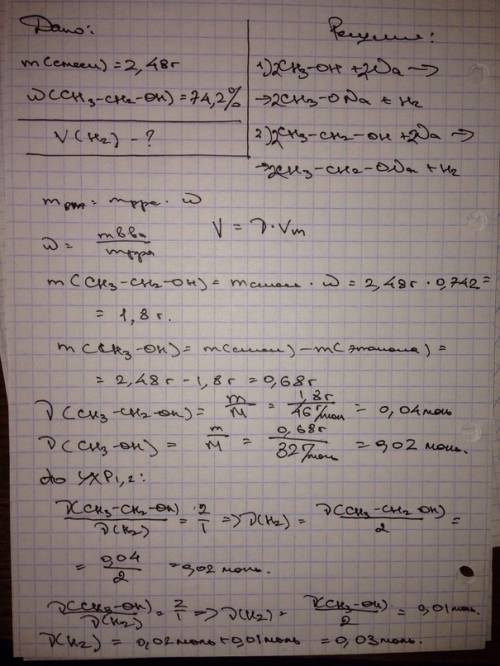 Дано:
m(смеси) = 2,48г
ω(CH3-CH2-OH) = 74,2%
V(H2) - ?
Решение:
1) 2CH3-OH + 2Na →
→ 2CH3-ONa + H2
2) 2CH3-CH2-OH + 2Na →
→ 2CH3-CH2-ONa + H2
ω = mвва / mрра
V = ν · Vm
m(CH3-CH2-OH) = mсмеси · ω = 2,48г · 0,742 =
= 1,8г.
m(CH3-OH) = m(смеси) - m(этанола) =
= 2,48г - 1,8г = 0,68г
ν(CH3-CH2-OH) = m/M = 1,8г / 46г/моль = 0,04моль
ν(CH3-OH) = m/M = 0,68г / 32г/моль = 0,02 моль.
По УХР1,2:
ν(CH3-CH2-OH) / ν(H2) = 2/1 => ν(H2) = ν(CH3-CH2-OH) / 2 =
= 0,04 / 2 = 0,02 моль.
ν(CH3-OH) / ν(H2) = 2/1 => ν(H2) = ν(CH3-OH) / 2 = 0,01моль.
ν(H2) = 0,02моль + 0,01моль = 0,03моль.